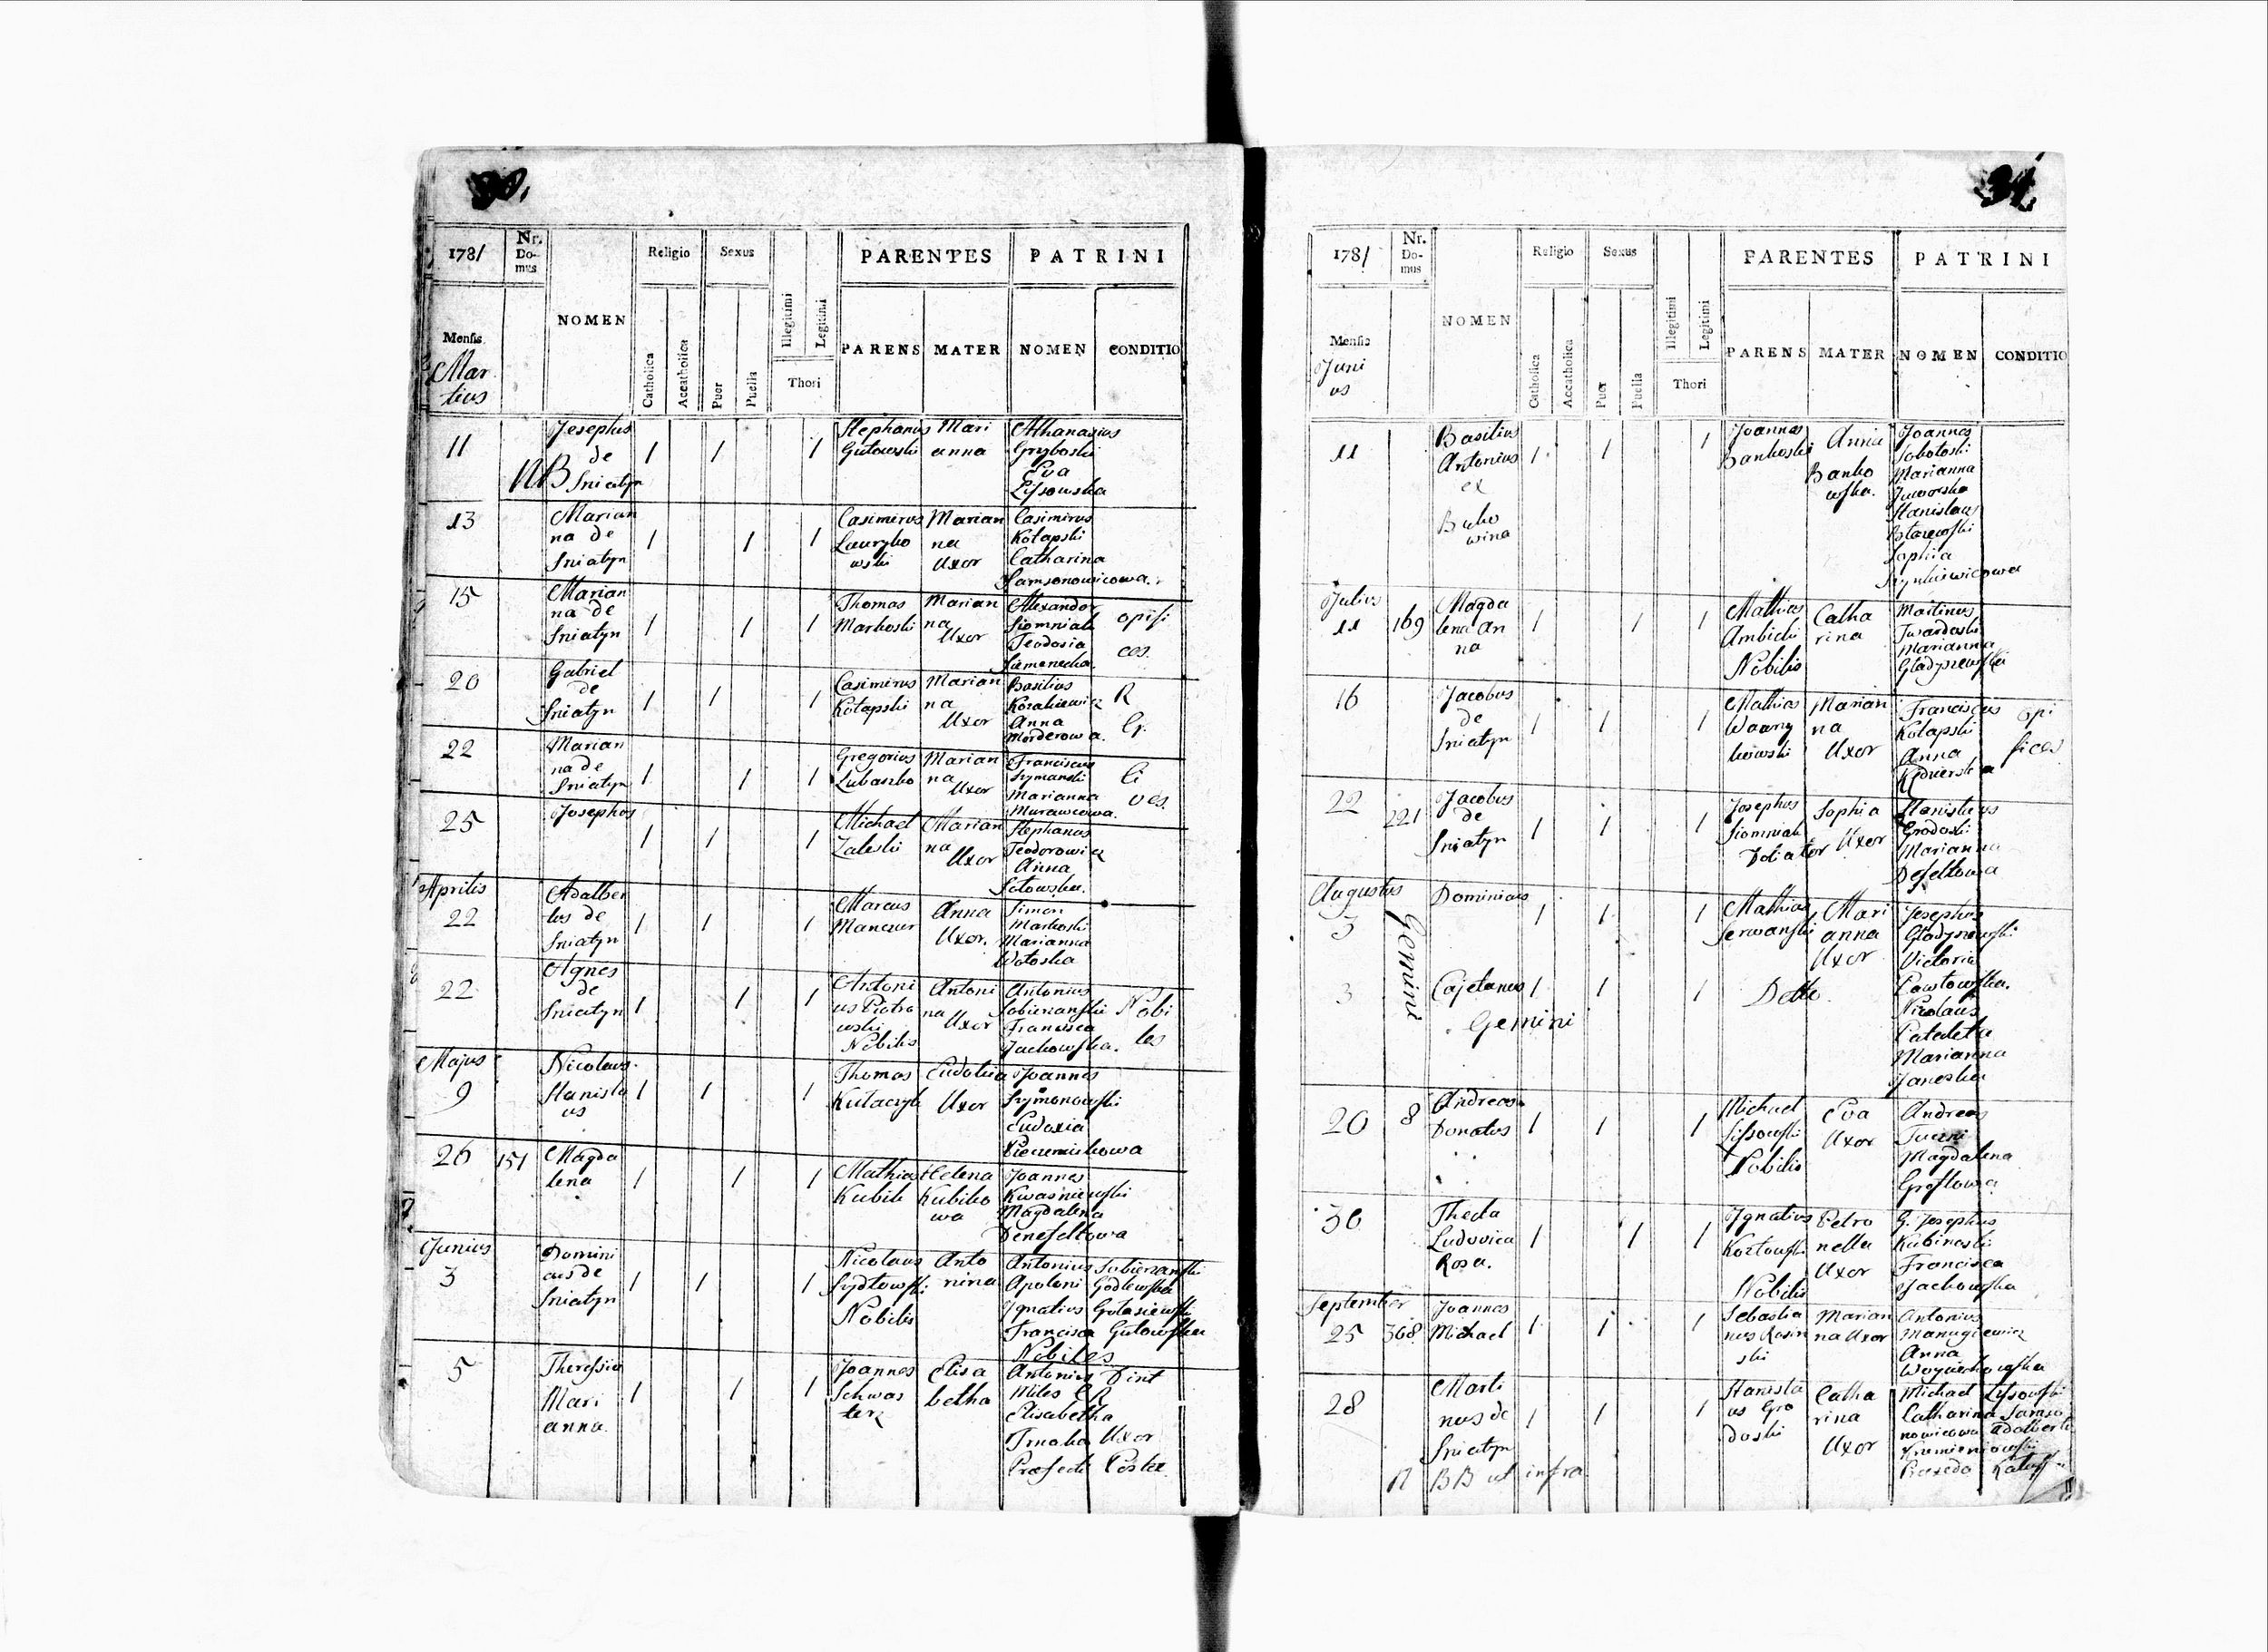 30.
178/ Nr. Domus NOMEN Religio Sexus PARENTES PATRINI
Mensis Catholica Accatholica Puer Puella Illegitimi Legitimi Thori PARENS MATER NOMEN CONDITIO
Martius
11 NB Josephus de Sniatyn 1 1 1 Stephanus Gutowski Marianna Athanasius Gryboski Eva Lisowska
13 Marianna de Sniatyn 1 1 1 Casimirus Marianna Uxor Casimirus Kołapski Catharina Samsonowicowa.
15 Marianna de Sniatyn 1 1 1 Thomas Markoski Marianna Uxor Alexander Siomniak Teodosia opifices.
20 Gabriel de Sniatyn 1 1 1 Casimirus Kołapski Marianna Uxor Basilius Anna Morderowa. R Cr.
22 Marianna de Sniatyn 1 1 1 Gregorius Lubaszko Marianna Uxor Franciscus Szymanski Marianna Murawcowa. Cives.
25 Josephus 1 1 1 Michael Zaleski Marianna Uxor Stephanus Teodorowicz Anna
Aprilis
22 Adalbertus de Sniatyn 1 1 1 Marcus Anna Uxor. Simon Markoski Marianna Wołoska
22 Agnes de Sniatyn 1 1 1 Antonius Piotrowski Nobilis Antonina Uxor Antonius Sobieranski Francisca Jachowska. Nobiles
Majus
9 Nicolaus Stanislaus 1 1 1 Thomas Kulaczyk Eudokia Uxor Joannes Szymonowski Eudoxia
26 151 Magdalena 1 1 1 Mathias Kubik Helena Kubikowa Joannes Kwasniewski Magdalena Denefelkowa
Junius
3 Dominicus de Sniatyn 1 1 1 Nicolaus Szydłowski Nobilis Antonina Antonius Sobieranski Apoloni Godlewska Ignatius Francisca Gutowska Nobiles
5 Theressia Marianna. 1 1 1 Joannes Elisabetha Antonius Miles CR Elisabetha Uxor Præfecti
178/ Nr. Domus NOMEN Religio Sexus PARENTES PATRINI
Mensis Catholica Accatholica Puer Puella Illegitimi Legitimi Thori PARENS MATER NOMEN CONDITIO
Junius
11 Basilius Antonius ex Bukowina 1 1 1 Joannes Bankoski Anna Bankowska. Joannes Sobotoski Marianna Jaworska Stanislaus Sophia
Julius
11 169 Magdalena Anna 1 1 1 Mathias Ambicki Nobilis Catharina Martinus Twardoski Marianna Gładyszewska
16 Jacobus de Sniatyn 1 1 1 Mathias Marianna Uxor Franciscus Kołapski Anna opifices
22 221 Jacobus de Sniatyn 1 1 1 Josephus Siomniak Doliator Sophia Uxor Stanislaus Grodoski Marianna
Augustus
3 Gemini Dominicus 1 1 1 Mathias Serwanski Marianna Uxor Josephus Gładyszewski Victoria Pawłowska.
3 Cajetanus 1 1 1 Detto Nicolaus Marianna Janeska
Gemini
20 8 Andreas Donatus 1 1 1 Michael Lissowski Nobilis Eva Uxor Andreas Magdalena
30 Thecla Ludovica Rosa. 1 1 1 Ignatius Kozłowski Nobilis Petronella Uxor G. Josephus Kubinoski Francisca Jachowska
September
25 368 Joannes Michael 1 1 1 Sebastianus Rosinski Marianna Uxor Antonius Manugiewicz Anna
28 Martinus de Sniatyn 1 1 1 Stanislaus Grodoski Catharina Uxor Michael Lissowski Catharina Samsonowicowa Adalbertus
NBB ut infra